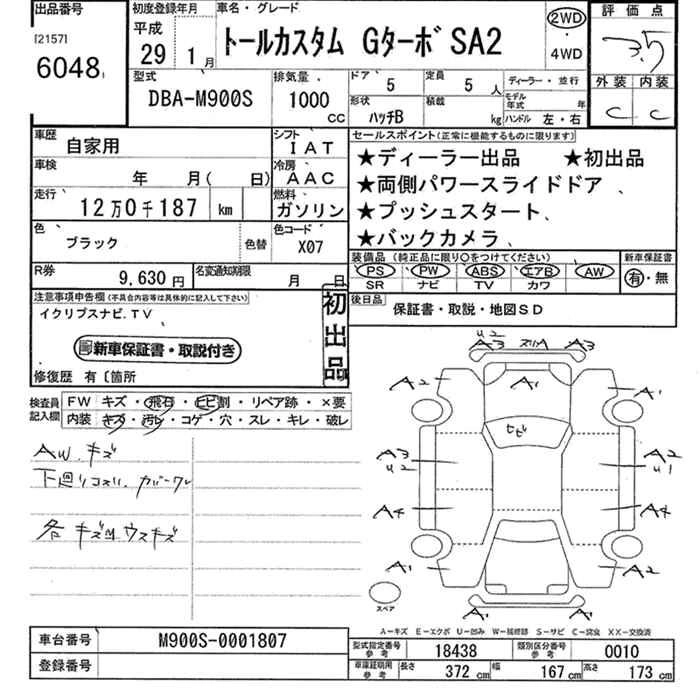 出品番号 初度登録年月 車名・グレード 評価点
[2157] 平成 2WD
6048 29年 1月 トールカスタム Gターボ SA2 4WD 3.5
型式 排気量 ドア 5 定員 5人 ディーラー・並行 外装 内装
DBA-M900S 1000cc 形状 ハッチB 積載 kg モデル年式 年 ハンドル 左・右 C C
車歴 自家用 シフト IAT セールスポイント(正常に機能するものに限ります)
車検 年 月( 日) 冷房 AAC ★ディーラー出品 ★初出品
走行 12万0千187 km 燃料 ガソリン ★両側パワースライドドア、
★プッシュスタート、
色 ブラック 色替 色コード X07 ★バックカメラ、
装備品(純正品に限り○をつけてください) 新車保証書
R券 9,630円 名変通知期限 月 日 PS PW ABS エアB AW 有・無
SR ナビ TV カワ
注意事項申告欄(不具合内容等は具体的に記入して下さい) 初出品 後日品 保証書・取説・地図SD
イクリプスナビ.TV
新車保証書・取説付き
修復歴 有〔箇所
検査員記入欄 FW キズ・飛石・ヒビ割・リペア跡・×要
内装 キズ・汚レ・コゲ・穴・スレ・キレ・破レ
AW.キズ
下廻りコスリ.カバーワレ
各キズM.ウスキズ
U2 A3 スリA A3
A2 A1 A1
ヒビ
A3 U2 A2 U1
A4 A4
A1 A2
A1 A1
スペア
A-キズ E-エクボ U-凹み W-補修跡 S-サビ C-腐食 XX-交換済
車台番号 M900S-0001807 型式指定番号 参考 18438 類別区分番号 参考 0010
登録番号 車庫証明用 参考 長さ 372cm 幅 167cm 高さ 173cm